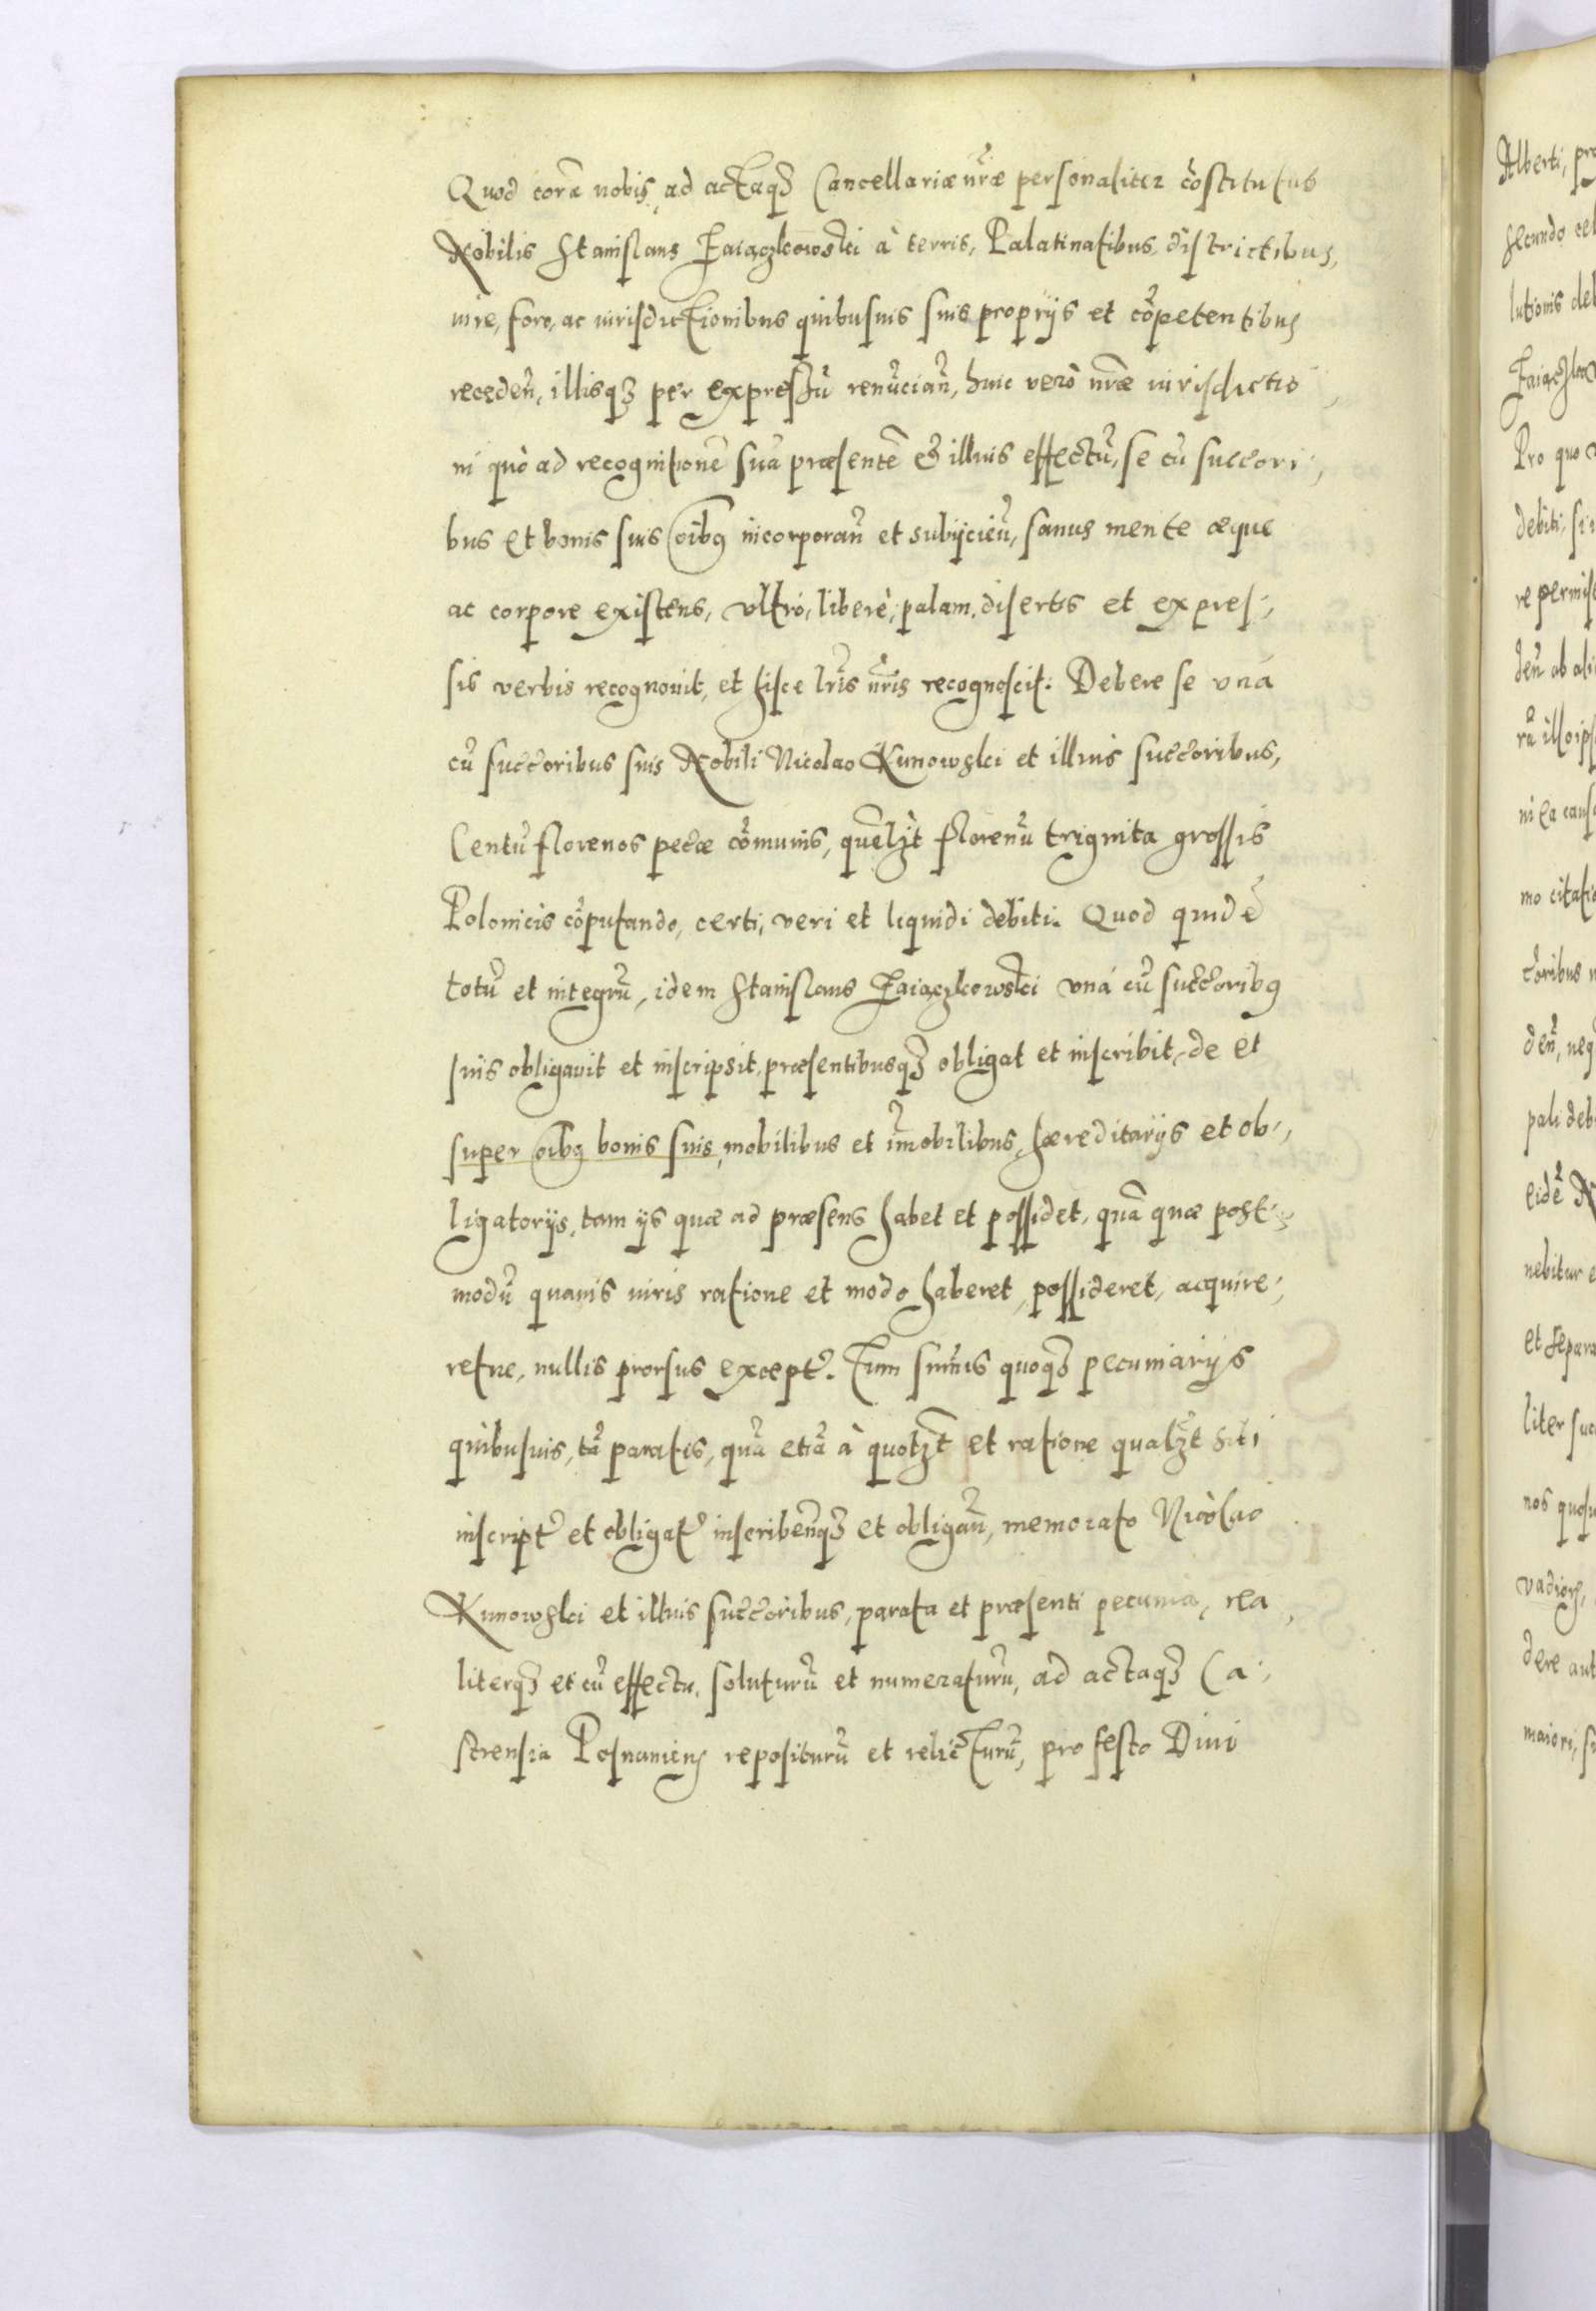 Quod corã nobis, ad actaq₃ Cancellariæ nr̃æ personaliter cõstitutus
Nobilis Stanislaus Zaiączkowski à terris, Palatinatibus, districtibus,
iure, foro, ac iurisdictionibus quibusuis suis proprijs et cõpetentibus
receden̄, illisq₃ per expressũ renũcian̄, huic verò nr̃æ iurisdictio
ni quò ad recognitionẽ suã præsentẽ & illius effectũ, se cũ succori,
bus et bonis suis oĩbꝯ incorporan̄ et subijcien̄, sanus mente æque
ac corpore existens, vltrò, liberè, palam, disertis et expres,
sis verbis recognouit, et hisce lr̃is nr̃is recognoscit. Debere se vnà
cũ succoribus suis Nobili Nicolao Kunowski et illius succoribus,
Centũ florenos pecæ cõmunis, quẽlzt florenũ triginta grossis
Polonicis cõputando, certi, veri et liquidi debiti. Quod quidẽ
totũ et integrũ, idem Stanislaus Zaiączkowski vnà cũ succoribꝯ
suis obligauit et inscripsit, præsentibusq₃ obligat et inscribit, de et
super oĩbꝯ bonis suis, mobilibus et im̃obilibus, hæreditarijs et ob,
ligatorijs, tam ijs quæ ad præsens habet et possidet, quã quæ post,
modũ quauis iuris ratione et modo haberet, possideret, acquire,
retue, nullis prorsus except̃. Tum sum̃is quoq₃ pecuniarijs
quibusuis, tã paratis, quã etiã à quolzt et ratione qualzt sibi
inscript̃ et obligat̃ inscriben̄q₃ et obligan̄, memorato Nicolao
Kunowski et illius succoribus, parata et præsenti pecunia, rea,
literq₃ et cũ effectu, soluturũ et numeraturũ, ad actaq₃ Ca,
strensia Posnanien̄ repositurũ et relicturũ, pro festo Diui